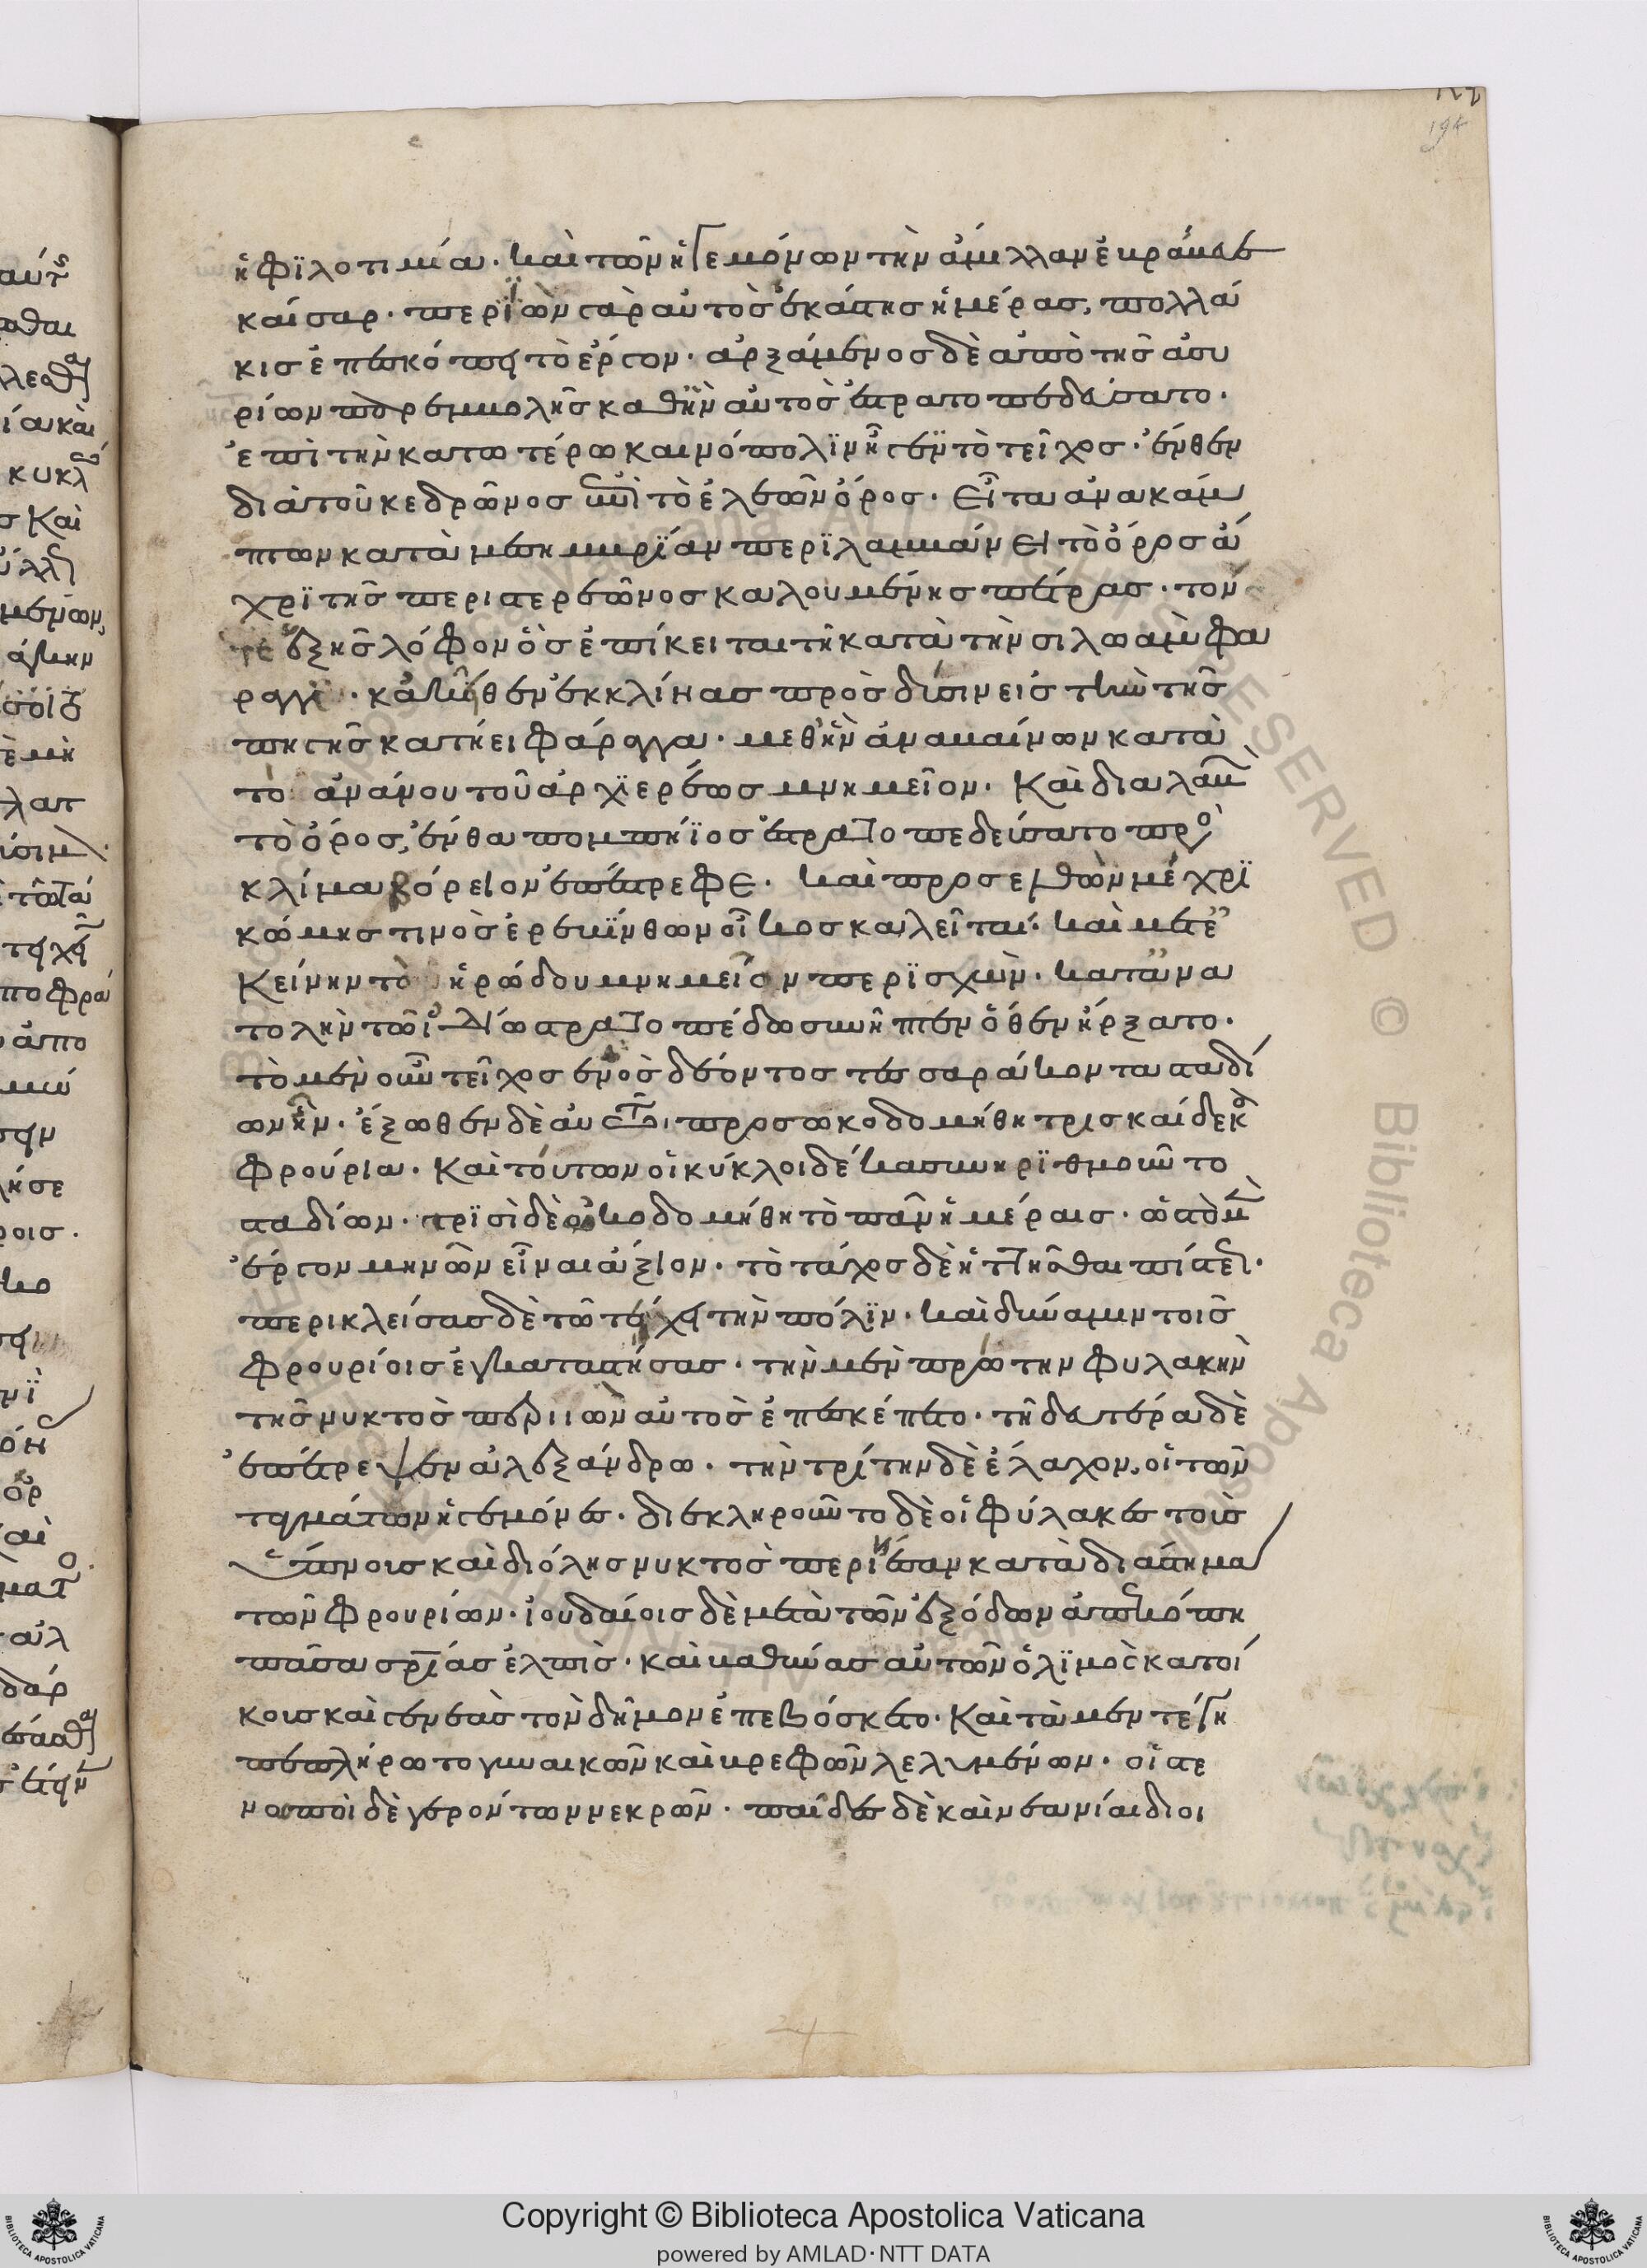 ἡ φϊλοτιμία· καὶ τῶν ἡγεμόνων τὴν ἅμιλλαν ἔκρινε
καίσαρ· περιϊὼν γὰρ αὐτὸς ἑκάστης ἡμέρας, πολλά
κις ἐπεσκόπει τὸ ἔργον· ἀρξάμενος δὲ ἀπὸ τῆς ἀσυ
ρίων παρεμβολῆς καθ' ἣν αὐτὸς ἐστρατοπεδεύσατο·
ἐπὶ τὴν κατωτέρω καινόπολϊν ἦγεν τὸ τεῖχος· ἔνθεν
διὰ τοῦ κεδρῶνος ἐπὶ τὸ ἐλεῶν ὄρος· εἶτα ἀνακάμ
πτων κατὰ μεσημβρίαν περϊλαμβάνει τὸ ὄρος ἄ
χρϊ τῆς περιστερεῶνος καλουμένης πέτρας· τόν
τε ἑξῆς λόφον ὃς ἐπίκειται τῇ κατὰ τὴν σιλωὰμ φα
ραγγϊ· κἀκεῖθεν ἐκκλίνας πρὸς δύσιν εἰς τὴν τῆς
πηγῆς κατῄει φάραγγα· μεθ' ἣν ἀναβαίνων κατὰ
τὸ ἀνάνου τοῦ ἀρχϊερέως μνημεῖον· καὶ διαλαβὼν
τὸ ὄρος, ἔνθα πομπήϊος ἐστρατοπεδεύσατο πρὸς
κλίμα βόρειον ἐπέστρεφε· καὶ προσελθὼν μέχρϊ
κώμης τινὸς ἐρεβΐνθων οἶκος καλεῖται· καὶ μετ' ἐ
κείνην τὸ ἡρώδου μνημεῖον περϊσχὼν· κατ' ἀνα
τολὴν τῶ ἰδίω στρατοπέδω συνῆπτεν ὅθεν ἤρξατο·
τὸ μὲν οὖν τεῖχος ἑνὸς δέοντος τεσσαράκοντα σταδί
ων ἦν· ἔξωθεν δὲ αὐτῶ προσωκοδομήθη τρισκαίδεκα
φρούρια· καὶ τούτων οἱ κύκλοι δέκα συνηρϊθμοῦντο
σταδίων· τρϊσὶ δὲ ὠκοδομήθη τὸ πᾶν ἡμέραις· ὡς τὸ μὲν
ἔργον μηνῶν εἶναι ἄξιον· τὸ τάχος δὲ ἡττῆσθαι πίστει·
περικλείσας δὲ τῶ τείχει τὴν πόλϊν· καὶ δύναμιν τοῖς
φρουρίοις ἐγκαταστήσας· τὴν μὲν πρώτην φυλακὴν
τῆς νυκτὸς περιιὼν αὐτὸς ἐπεσκέπτετο· τὴ δευτέρα δὲ
ἐπέστρεψεν ἀλεξάνδρω· τὴν τρίτην δὲ ἔλαχον, οἱ τῶν
ταγμάτων ἡγεμόνες· διεκληροῦντο δὲ οἱ φύλακες τοὺς
ὕπνους καὶ δι' ὅλης νυκτὸς περιῄεσαν κατὰ διάστημα
τῶν φρουρίων· ἰουδαίοις δὲ μετὰ τῶν ἐξόδων ἀπεκόπη
πᾶσα σωτηρίας ἐλπὶς· καὶ βαθύνας αὐτῶν ὁ λϊμὸς κατοί
κους καὶ γενεὰς τὸν δῆμον ἐπεβόσκετο· καὶ τὰ μὲν τέγη
πεπλήρωτο γυναικῶν καὶ βρεφῶν λελυμένων· οἱ στε
νωποὶ δὲ γερόντων νεκρῶν· παῖδες δὲ καὶ νεανίαι διοι